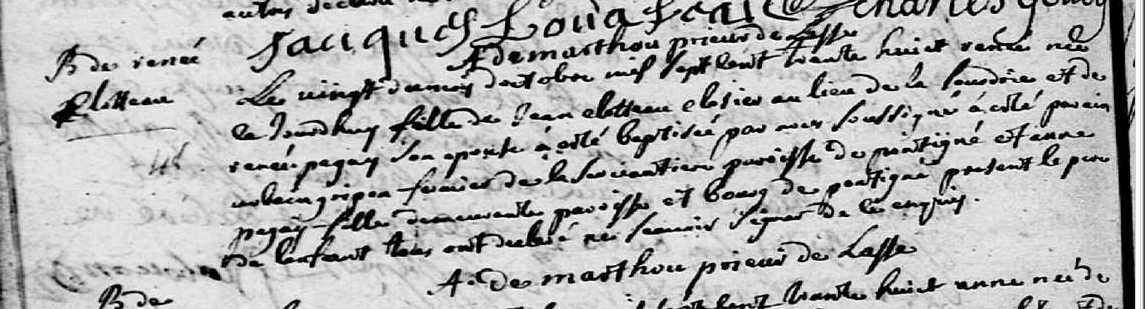 autres
Jacques Charles
A Demarthou prieur de Lasse
B de renée
Clotteau
Le vingt du mois doctobre mil sept cent trante huict renée née
ce Jourdhuy fille de Jean Clotteau closier au lieu de la et de
renée pegay son epouse à esté baptisée par nous soussigné à esté parain
urbain gripon fermier de la paroisse de pontigné et anne
pegay fille demeurante paroisse et bourg de pontigné present le pere
de lenfant tous ont declaré ne scauoir signer de ce enquis.
A. De marthou prieur de Lasse
B de
cent trante huict anne née de